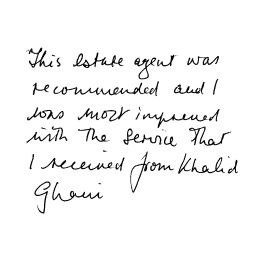 This estate agent was
recommended and I
was most impressed
with the service that
I received from Khalid
Ghani